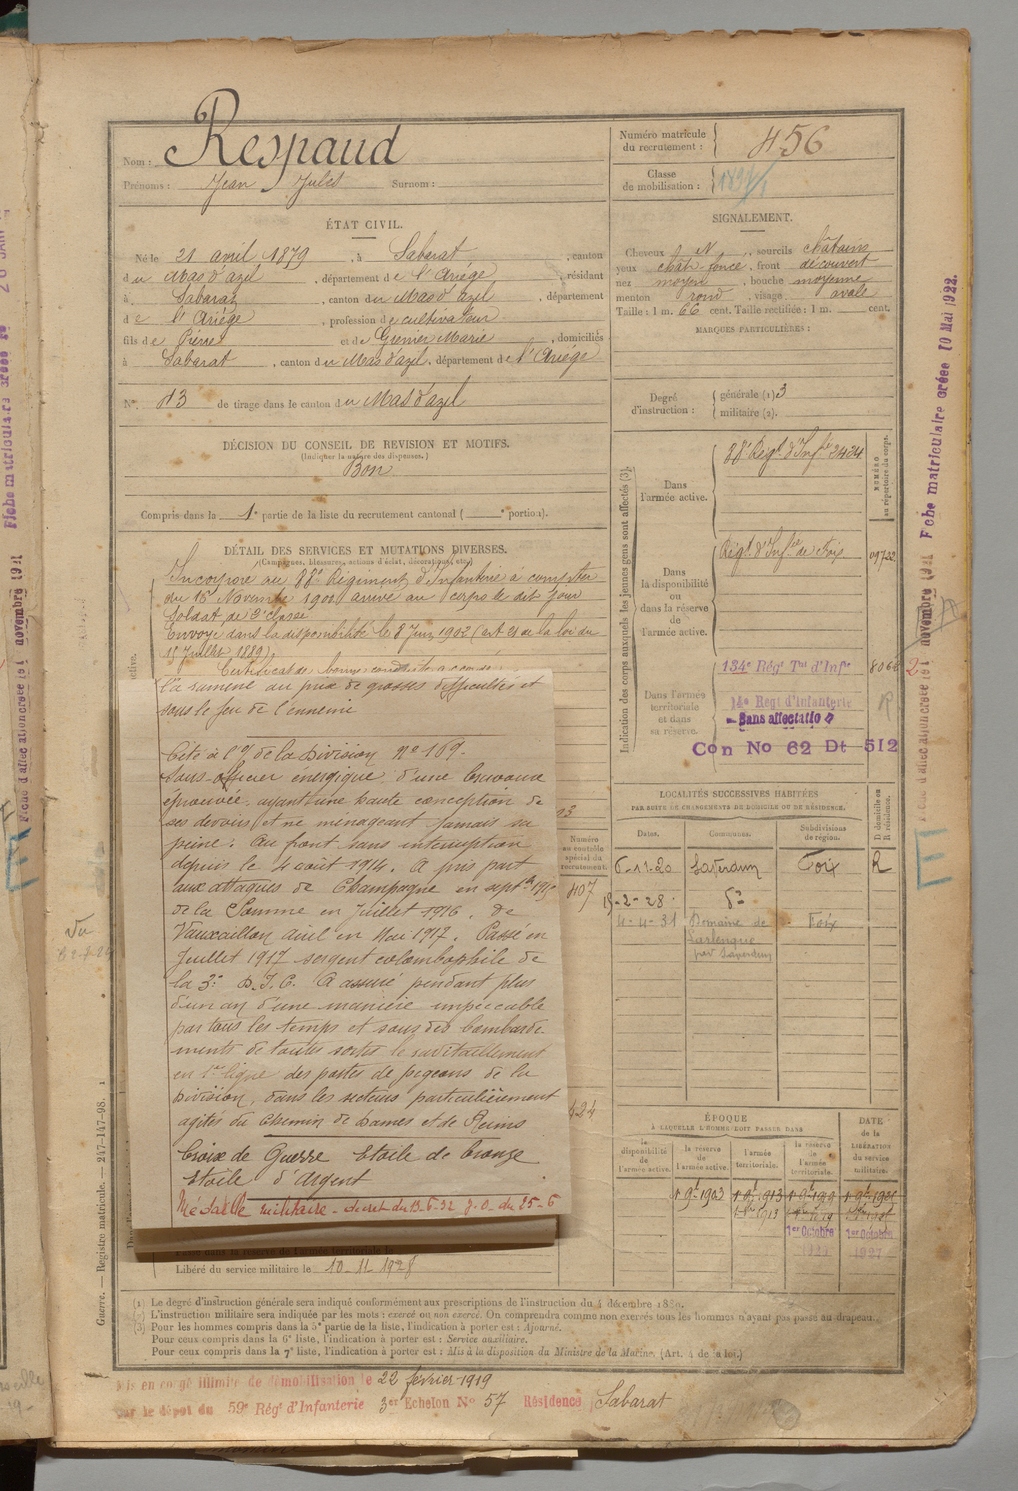 Nom : Respaud
Prénoms : Jean Jules Surnom :
Numéro matricule du recrutement : 456
Classe de mobilisation :
ÉTAT CIVIL.
Né le 21 avril 1879, à Sabarat, canton
du Mas d'azil, département de l'Ariége, résidant
à Sabarat, canton du Mas d'azil, département
de l'Ariége, profession de cultivateur
fils de Pierre et de Grenier Marie, domiciliés
à Sabarat, canton du Mas d'azil, département de l'Ariége
N° 43 de tirage dans le canton du Mas d'azil
SIGNALEMENT.
Cheveux N, sourcils châtains
yeux chât. foncé, front découvert
nez moyen, bouche moyenne
menton rond, visage ovale
Taille : 1 m. 66 cent. Taille rectifiée : 1 m. cent.
MARQUES PARTICULIÈRES :
Degré d'instruction : générale (1) 3
militaire (2).
DÉCISION DU CONSEIL DE REVISION ET MOTIFS.
(Indiquer la nature des dispenses.)
Bon
Compris dans la 1e partie de la liste du recrutement cantonal ( e portion).
DÉTAIL DES SERVICES ET MUTATIONS DIVERSES.
(Campagnes, blessures, actions d'éclat, décorations, etc.)
Incorporé au 88e Régiment d'Infanterie à compter
du 16 Novembre 1900 arrivé au corps le dit jour
Soldat de 2e classe
Envoyé dans la disponibilité le 8 Juin 1902 (art 21 de la loi du
15 Juillet 1889).
Certificat de bonne conduite accordé
la ramené au prix de grosses difficultés et
sous le feu de l'ennemi
Cité à l'O/ de la Division N° 169.
Sous-officier énergique, d'une bravoure
éprouvée, ayant une haute conception de
ses devoirs et ne ménageant jamais sa
peine. Au front sans interruption
depuis le 4 août 1914. A pris part
aux attaques de Champagne en septbre 1915
de la Somme en Juillet 1916, de
Vauxaillon avril en Mai 1917. Passé en
Juillet 1917 sergent colombophile de
la 3e D.I.C. A assuré pendant plus
d'un an d'une manière impeccable
par tous les temps et sous des bombarde
ments de toutes sortes le ravitaillement
en 1re ligne des postes de pigeons de la
Division, dans les secteurs particulièrement
agités du Chemin de Dames et de Reims
Croix de Guerre Etoile de bronze
Etoile d'Argent
Médaille militaire - décret du 13-6-32 J.O. du 25-6
Libéré du service militaire le 10-11-1928
Indication des corps auxquels les jeunes gens sont affectés (3).
NUMÉRO au répertoire du corps.
Dans l'armée active.
88e Régt d'Infie 2424
Dans la disponibilité ou dans la réserve de l'armée active.
Régt d'Infie de Foix 09722
Dans l'armée territoriale et dans sa réserve.
134e Régt Tal d'Infie
14e Régt d'Infanterie
Sans affectation
Con No 62 Dt 512
LOCALITÉS SUCCESSIVES HABITÉES
PAR SUITE DE CHANGEMENTS DE DOMICILE OU DE RÉSIDENCE.
Dates. Communes. Subdivisions de région. D domicile ou R résidence.
Saverdun Foix R
19-2-28 do
4-4-31 Domaine de Larlenque par Saverdun Foix
Numéro au contrôle spécial du recrutement.
407
624
ÉPOQUE
À LAQUELLE L'HOMME DOIT PASSER DANS
la disponibilité de l'armée active. la réserve de l'armée active. l'armée territoriale. la réserve de l'armée territoriale. DATE de la LIBÉRATION du service militaire.
1er Octobre 1er Octobre
1927
(1) Le degré d'instruction générale sera indiqué conformément aux prescriptions de l'instruction du 4 décembre 1889.
(2) L'instruction militaire sera indiquée par les mots : exercé ou non exercé. On comprendra comme non exercés tous les hommes n'ayant pas passé au drapeau.
(3) Pour les hommes compris dans la 5e partie de la liste, l'indication à porter est : Ajourné.
Pour ceux compris dans la 6e liste, l'indication à porter est : Service auxiliaire.
Pour ceux compris dans la 7e liste, l'indication à porter est : Mis à la disposition du Ministre de la Marine. (Art. 4 de la loi.)
Mis en congé illimité de démobilisation le 22 février 1919
par le dépôt du 59e Régt d'Infanterie 3er Echelon No 57 Résidence Sabarat
Guerre. — Registre matricule. — 247-147-98.
Fiche matriculaire créée 10 Mai 1922.